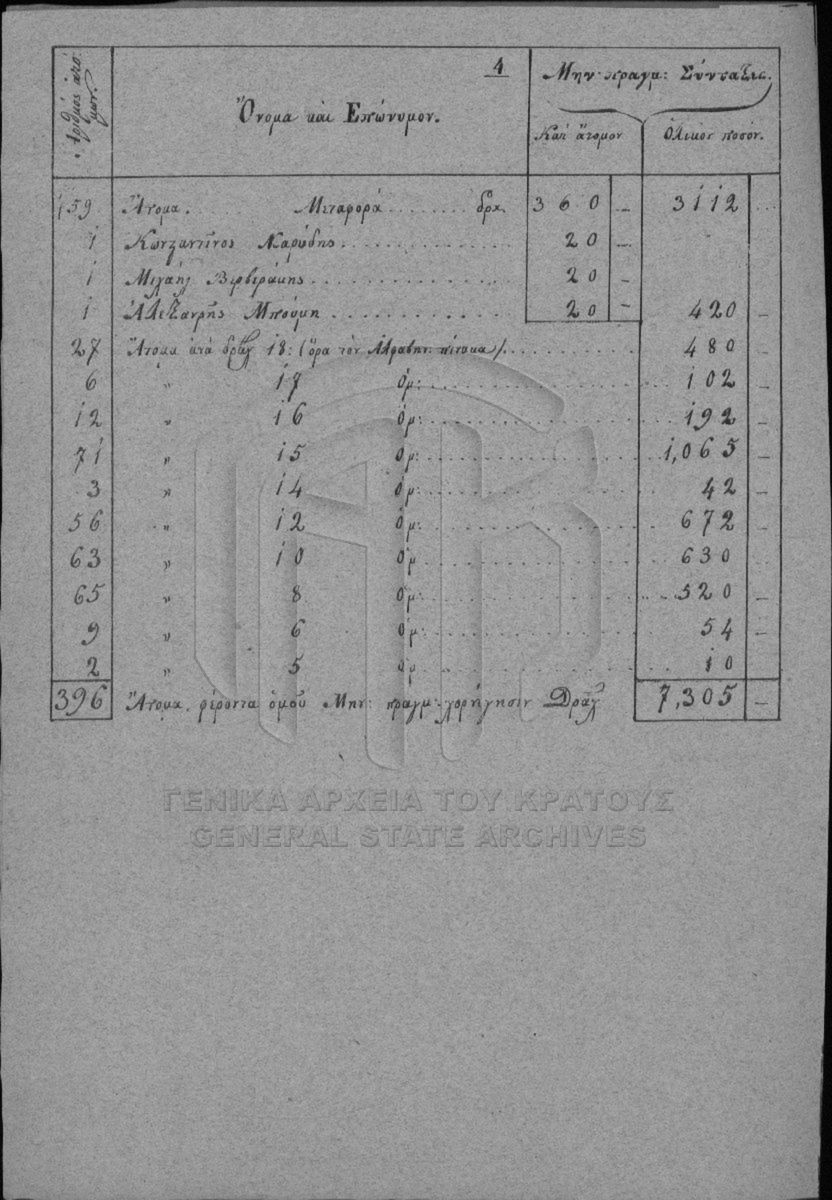 4
Ἀριθμὸς ἀτό-
μων.
Ὄνομα καὶ Ἐπώνυμον.
Μην. πραγμ: Σύνταξις.
Κατ' ἄτομον
Ὁλικὸν ποσόν.
159 Ἄτομα. Μεταφορὰ ........ δρχ. 360 _ 3112
1 Κωνσαντῖνος ................ 20 _
1 Μιχαὴλ ................ 20 _
1 Ἀλεξανρῆς Μπούμη ........... 20 _ 420 _
27 Ἄτομα ἀνὰ δραχ 18: (ὅρα τὸν Ἀλφαβητ. πίνακα) ......... 480 _
6 " 17 ὁμ: ............ 102 _
12 " 16 ὁμ: ............ 192 _
71 " 15 ὁμ: ............ 1,065 _
3 " 14 ὁμ: ............ 42 _
56 " 12 ὁμ: ............ 672 _
63 " 10 ὁμ ............ 630
65 " 8 ὁμ: ............ 520 _
9 " 6 ὁμ: ............ 54 _
2 " 5 ὁμ ............ 10
396 Ἄτομα, φέροντα ὁμοῦ Μην: πραγμ: χορήγησιν Δραχ 7,305 _
ΓΕΝΙΚΑ ΑΡΧΕΙΑ ΤΟΥ ΚΡΑΤΟΥΣ
GENERAL STATE ARCHIVES